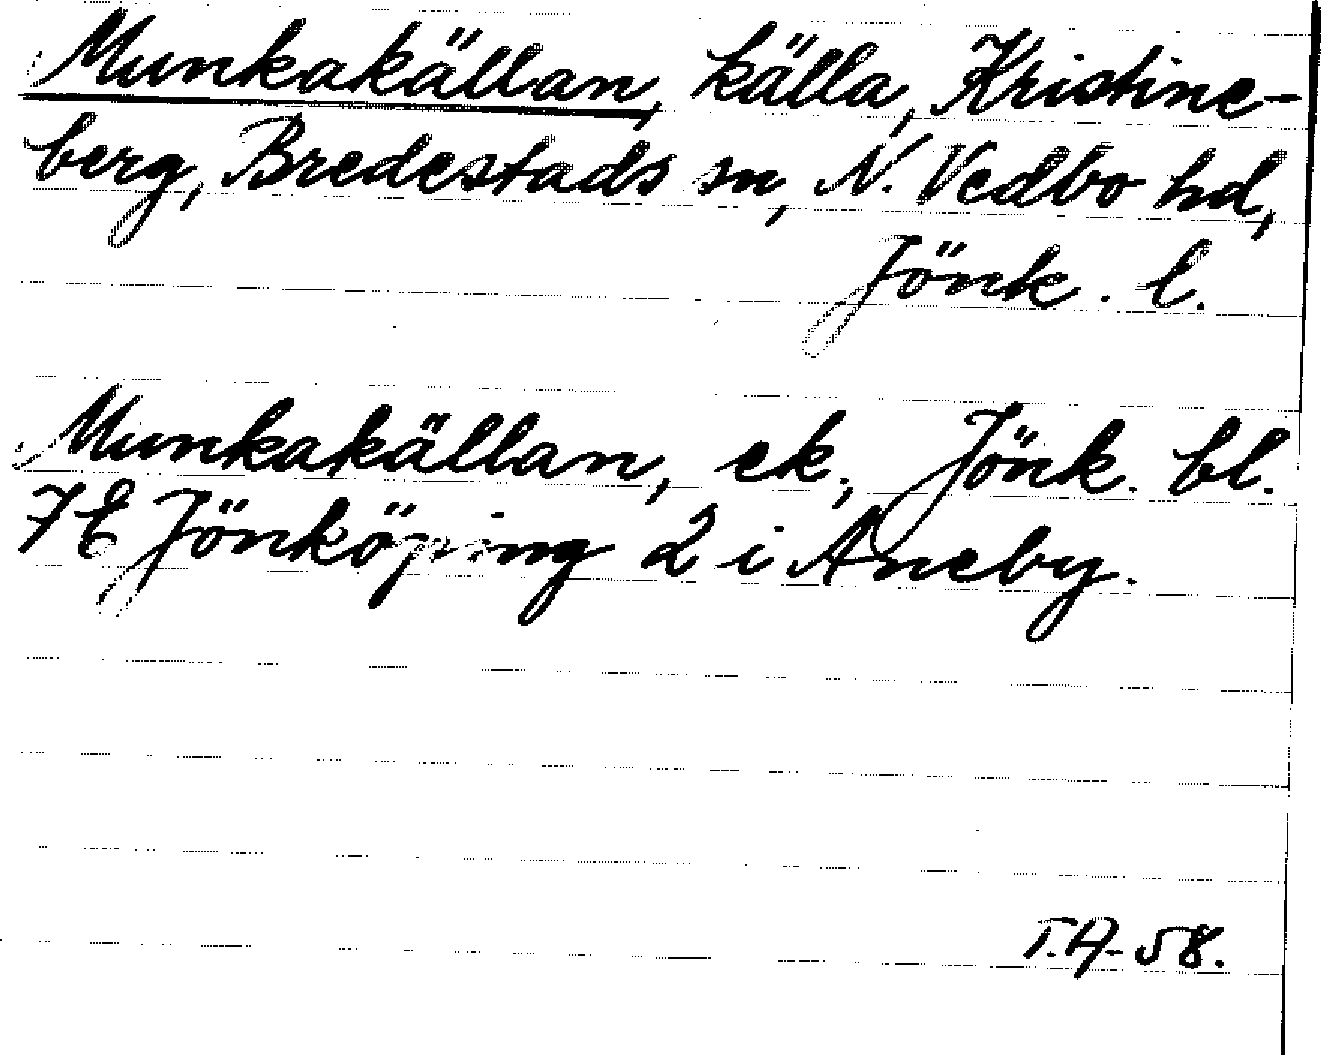 Munkakällan, källa, Kristine-
berg, Bredestads sn, N. Vedbo hd,
Jönk. l.
Munkakällan, ek, Jönk. bl.
7E Jönköping 2 i Aneby.
T.A-58.